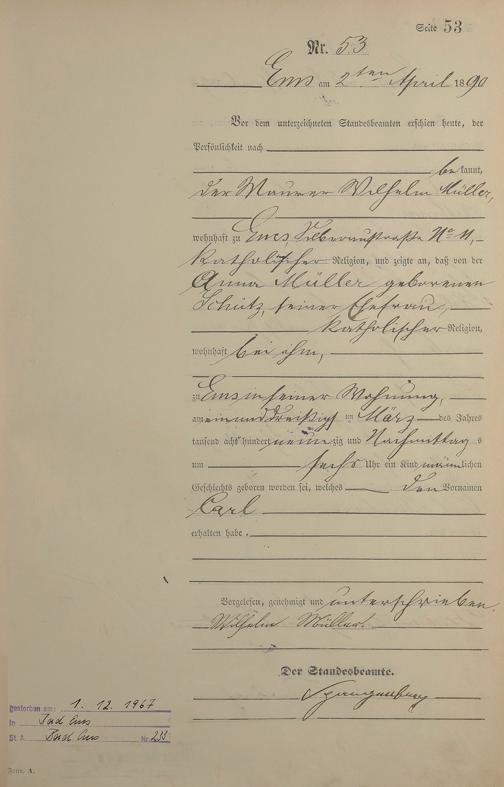 Seite 53
Nr. 53
Ems am 2ten April 1890
Vor dem unterzeichneten Standesbeamten erschien heute, der
Persönlichkeit nach
be kannt,
der Maurer Wilhelm Müller,
wohnhaft zu Ems, Silberaustraße No 11,
katholischer Religion, und zeigte an, daß von der
Anna Müller geborenen
Schütz, seiner Ehefrau,
katholischer Religion,
wohnhaft bei ihm,
zu Ems in seiner Wohnung,
am einunddreißigsten März des Jahres
tausend acht hundert neunzig und Nachmittags
um sechs Uhr ein Kind männlichen
Geschlechts geboren worden sei, welches den Vornamen
Carl
erhalten habe.
Vorgelesen, genehmigt und unterschrieben
Wilhelm Müller.
Der Standesbeamte.
Spangenberg
gestorben am: 1. 12. 1967
in Bad Ems
St. A. Bad Ems Nr. 233
Form. A.